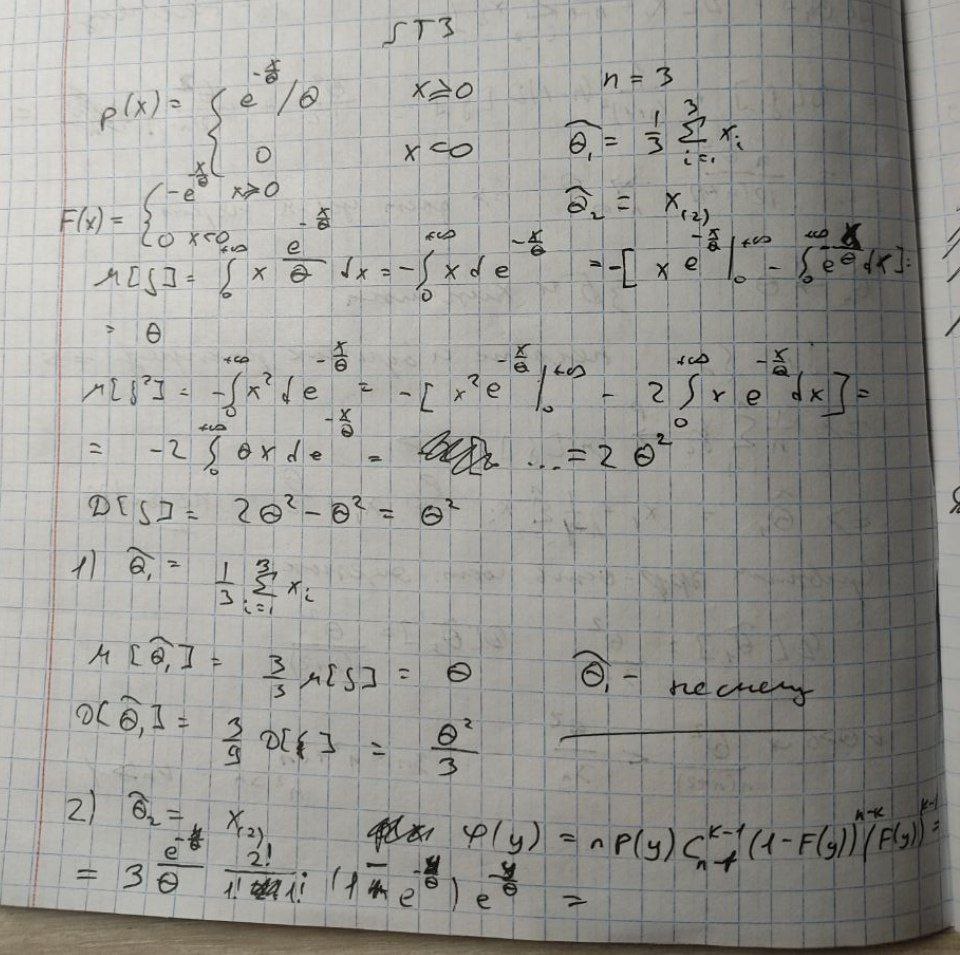 ST3
p(x) = { e^{-x/θ}/θ x ⩾ 0 n = 3
0 x < 0 θ̂₁ = 1/3 ∑_{i=1}^{3} xᵢ
F(x) = { -e^{-x/θ} x ⩾ 0 θ̂₂ = x₍₂₎
0 x < 0
M[ξ] = ∫₀^{+∞} x e^{-x/θ}/θ dx = -∫₀^{+∞} x d e^{-x/θ} = -[x e^{-x/θ} |₀^{+∞} - ∫₀^{+∞} e^{-x/θ} dx] =
= θ
M[ξ²] = -∫₀^{+∞} x² d e^{-x/θ} = -[x² e^{-x/θ} |₀^{+∞} - 2 ∫₀^{+∞} x e^{-x/θ} dx] =
= -2 ∫₀^{+∞} θ x d e^{-x/θ} = ... = 2θ²
D[ξ] = 2θ² - θ² = θ²
1) θ̂₁ = 1/3 ∑_{i=1}^{3} xᵢ
M[θ̂₁] = 3/3 M[ξ] = θ θ̂₁ - несмещ
D[θ̂₁] = 3/9 D[ξ] = θ²/3
2) θ̂₂ = x₍₂₎ φ(y) = n P(y) C_{n-1}^{k-1} (1 - F(y))^{n-k} (F(y))^{k-1} =
= 3 e^{-y/θ}/θ 2!/(1! 1!) (1 - e^{-y/θ}) e^{-y/θ} =